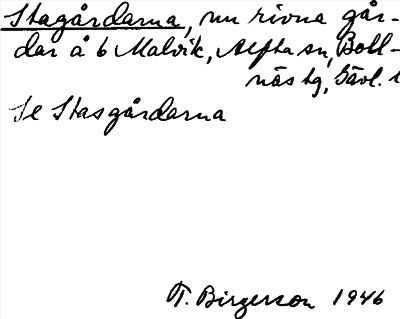 Stagårdarna, nu rivna går-
dar å 6 Malvik, Alfta sn, Boll-
näs tg, Gävl. l
Se Stasgårdarna
T. Birgerson 1946